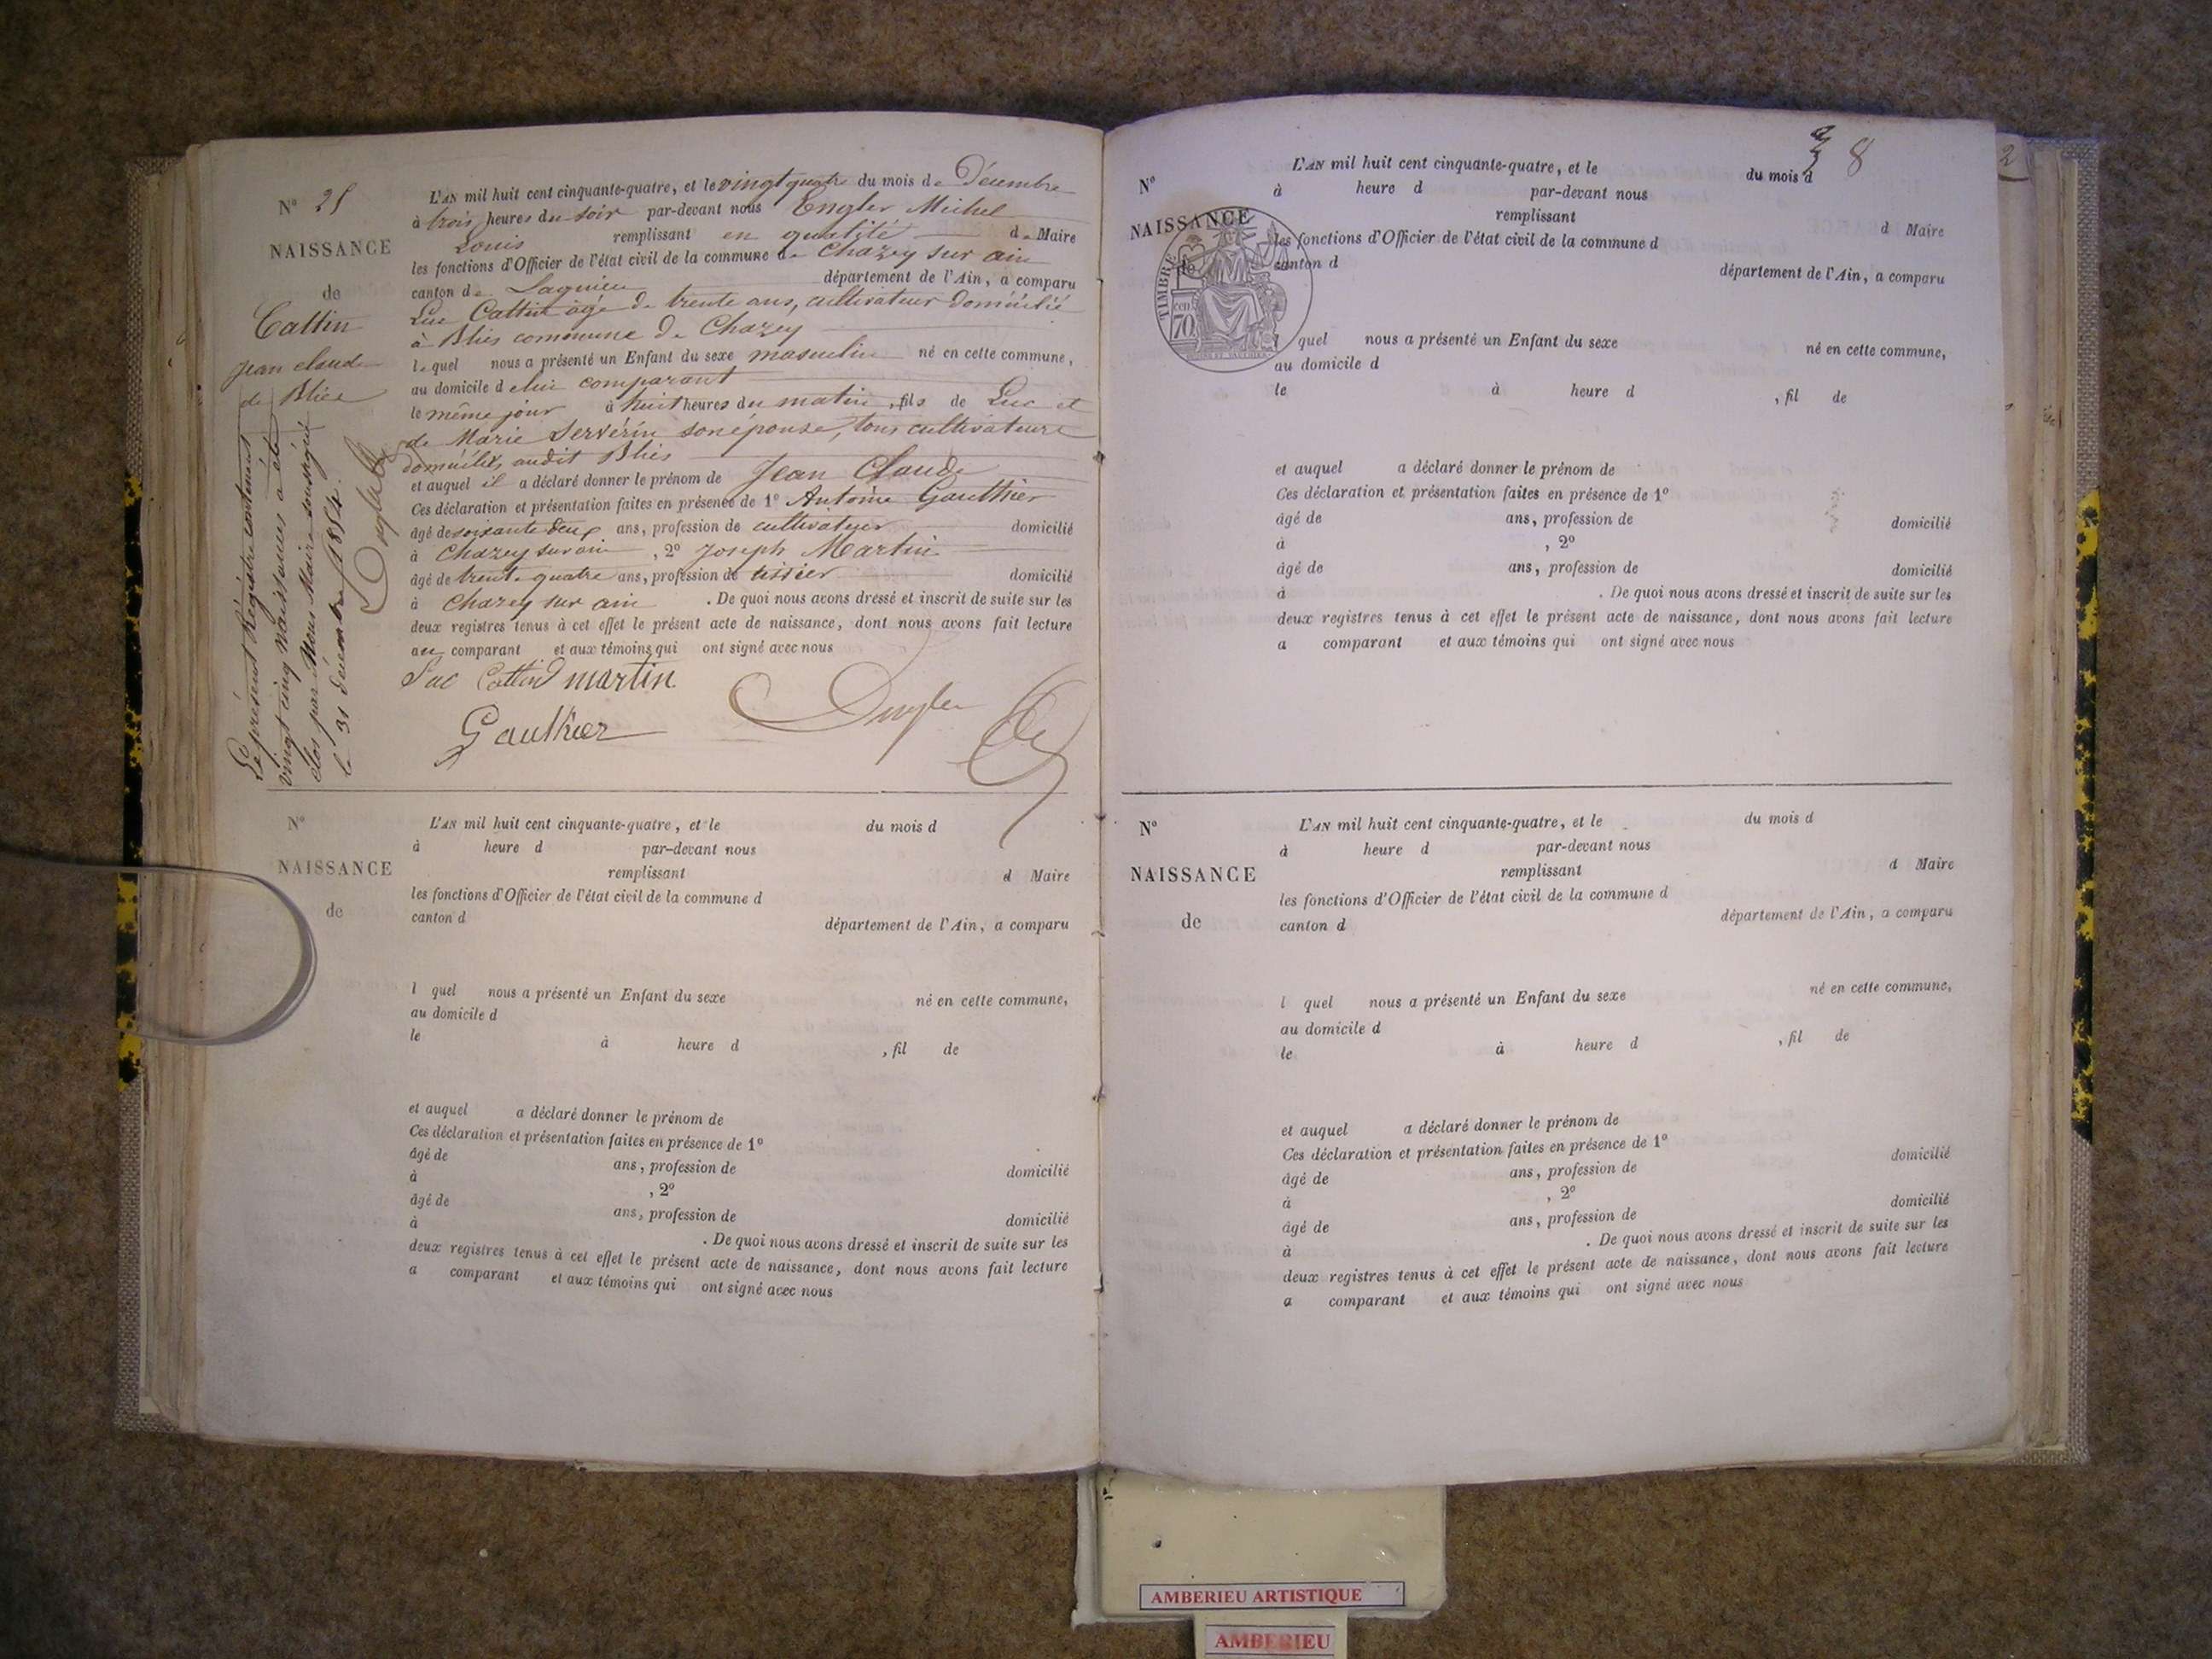 Nº 25
NAISSANCE
de
Cattin
Jean claude
de Blies
Le présent Régistre contenant
vingt cinq naissances a été
clos par Nous Maire soussigné
le 31 décembre 1854.
L'AN mil huit cent cinquante-quatre, et le vingt quatre du mois de Décembre
à trois heures du soir par-devant nous Engler Michel
Louis remplissant en qualité de Maire
les fonctions d'Officier de l'état civil de la commune de Chazey sur ain
canton de Lagnieu département de l'Ain, a comparu
Luc Cattin âgé de trente ans, cultivateur domicilié
à Blies commune de Chazey
lequel nous a présenté un Enfant du sexe masculin né en cette commune,
au domicile de lui comparant
le même jour à huit heures du matin, fils de Luc et
de Marie Servérin son épouse, tous cultivateurs
domiciliés audit Blies
et auquel il a déclaré donner le prénom de Jean Claude
Ces déclaration et présentation faites en présence de 1º Antoine Gautthier
âgé de soixante deux ans, profession de cultivateur domicilié
à Chazey sur ain, 2º Joseph Martin
âgé de trente quatre ans, profession de tissier domicilié
à Chazey sur ain. De quoi nous avons dressé et inscrit de suite sur les
deux registres tenus à cet effet le présent acte de naissance, dont nous avons fait lecture
au comparant et aux témoins qui ont signé avec nous
Luc Cattin martin
Gauthier
Nº
NAISSANCE
de
L'AN mil huit cent cinquante-quatre, et le du mois d
à heure d par-devant nous
remplissant d Maire
les fonctions d'Officier de l'état civil de la commune d
canton d département de l'Ain, a comparu
l quel nous a présenté un Enfant du sexe né en cette commune,
au domicile d
le à heure d , fil de
et auquel a déclaré donner le prénom de
Ces déclaration et présentation faites en présence de 1º
âgé de ans, profession de domicilié
à , 2º
âgé de ans, profession de domicilié
à . De quoi nous avons dressé et inscrit de suite sur les
deux registres tenus à cet effet le présent acte de naissance, dont nous avons fait lecture
a comparant et aux témoins qui ont signé avec nous
8
2
Nº
NAISSANCE
de
TIMBRE
cen
70
L'AN mil huit cent cinquante-quatre, et le du mois d
à heure d par-devant nous
remplissant d Maire
les fonctions d'Officier de l'état civil de la commune d
canton d département de l'Ain, a comparu
l quel nous a présenté un Enfant du sexe né en cette commune,
au domicile d
le à heure d , fil de
et auquel a déclaré donner le prénom de
Ces déclaration et présentation faites en présence de 1º
âgé de ans, profession de domicilié
à , 2º
âgé de ans, profession de domicilié
à . De quoi nous avons dressé et inscrit de suite sur les
deux registres tenus à cet effet le présent acte de naissance, dont nous avons fait lecture
a comparant et aux témoins qui ont signé avec nous
Nº
NAISSANCE
de
L'AN mil huit cent cinquante-quatre, et le du mois d
à heure d par-devant nous
remplissant d Maire
les fonctions d'Officier de l'état civil de la commune d
canton d département de l'Ain, a comparu
l quel nous a présenté un Enfant du sexe né en cette commune,
au domicile d
le à heure d , fil de
et auquel a déclaré donner le prénom de
Ces déclaration et présentation faites en présence de 1º
âgé de ans, profession de domicilié
à , 2º
âgé de ans, profession de domicilié
à . De quoi nous avons dressé et inscrit de suite sur les
deux registres tenus à cet effet le présent acte de naissance, dont nous avons fait lecture
a comparant et aux témoins qui ont signé avec nous
AMBERIEU ARTISTIQUE
AMBERIEU